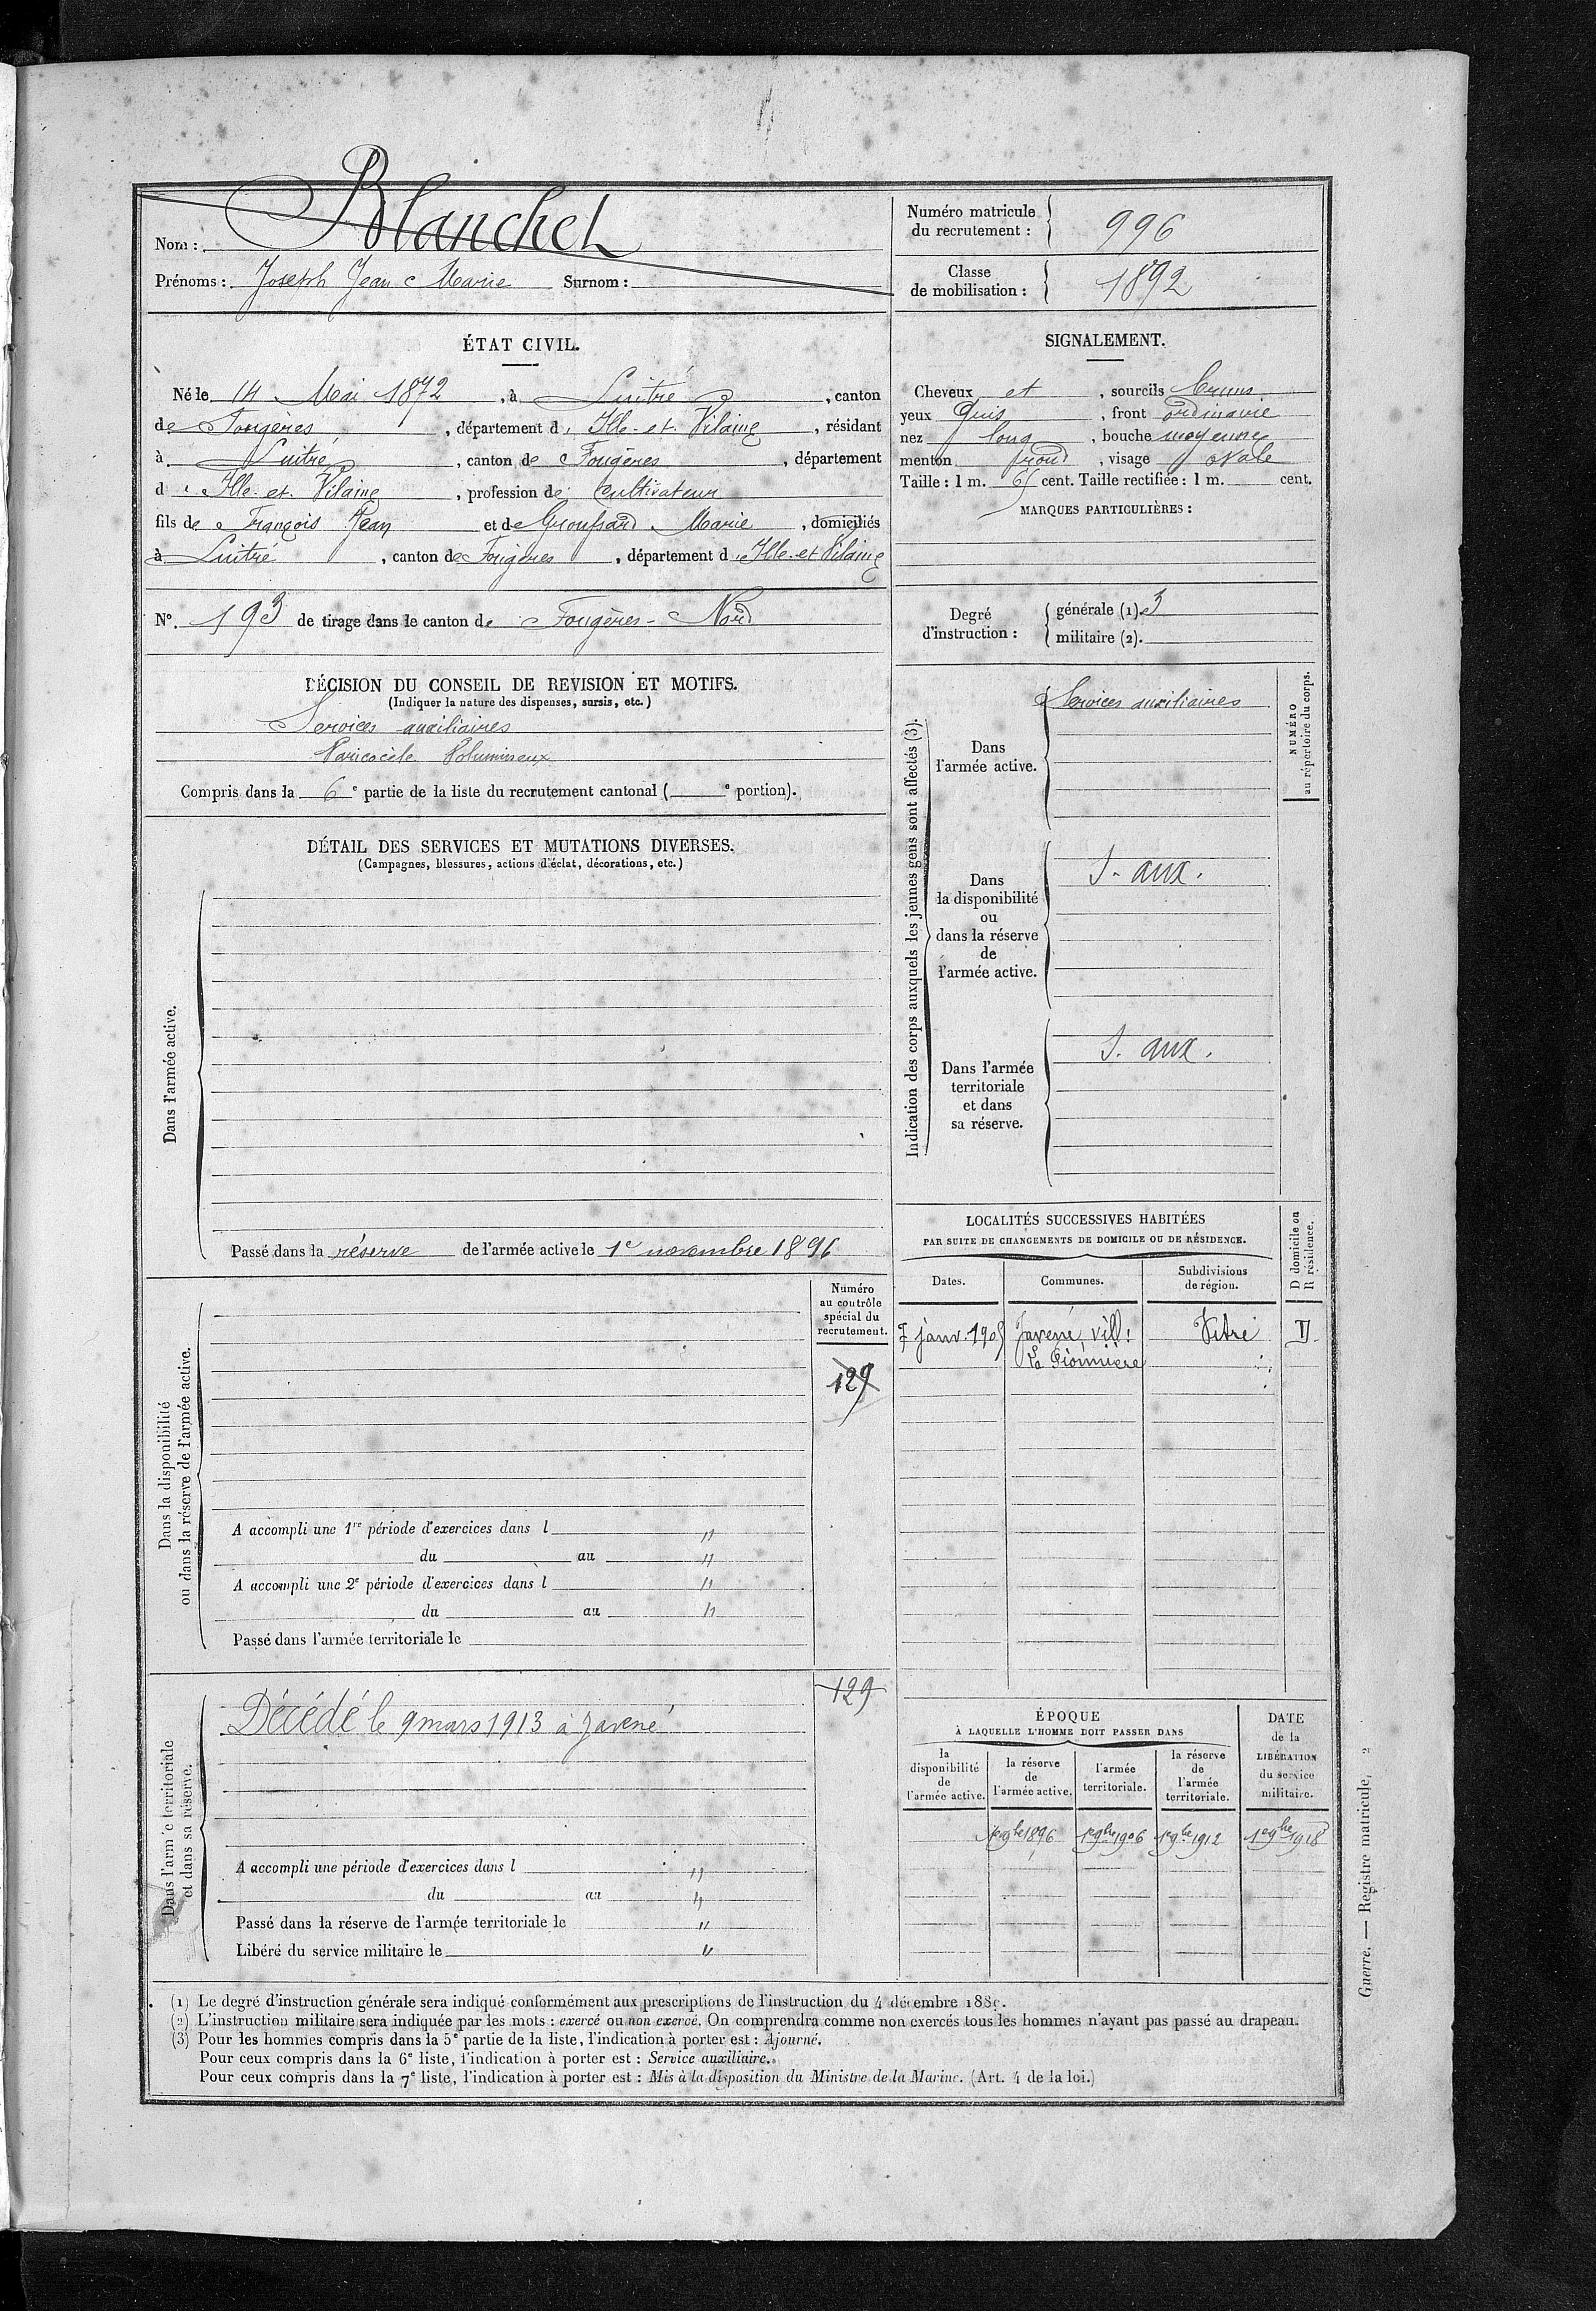 Nom : Blanchet
Prénoms : Joseph Jean Marie Surnom :
Numéro matricule du recrutement : 996
Classe de mobilisation : 1892
ÉTAT CIVIL.
Né le 14 Mai 1872, à Luitré, canton
de Fougères, département d'Ille-et-Vilaine, résidant
à Luitré, canton de Fougères, département
d'Ille-et-Vilaine, profession de cultivateur
fils de François Jean et de Marie, domiciliés
à Luitré, canton de Fougères, département d'Ille-et-Vilaine
N°. 193 de tirage dans le canton de Fougères-Nord
DÉCISION DU CONSEIL DE REVISION ET MOTIFS.
(Indiquer la nature des dispenses, sursis, etc.)
Services auxiliaires
Varicocèle Volumineux
Compris dans la 6e partie de la liste du recrutement cantonal ( e portion).
DÉTAIL DES SERVICES ET MUTATIONS DIVERSES.
(Campagnes, blessures, actions d'éclat, décorations, etc.)
Dans l'armée active.
Passé dans la réserve de l'armée active le 1e novembre 1896
Dans la disponibilité
ou dans la réserve de l'armée active.
Numéro
au contrôle
spécial du
recrutement.
129
A accompli une 1re période d'exercices dans l "
du au "
A accompli une 2e période d'exercices dans l "
du au "
Passé dans l'armée territoriale le
129
Dans l'armée territoriale
et dans sa réserve.
Décédé le 9 mars 1913 à Javené
A accompli une période d'exercices dans l "
du au "
Passé dans la réserve de l'armée territoriale le "
Libéré du service militaire le "
SIGNALEMENT.
Cheveux et, sourcils bruns
yeux gris, front ordinaire
nez long, bouche moyenne
menton rond, visage ovale
Taille : 1 m. 65 cent. Taille rectifiée : 1 m. cent.
MARQUES PARTICULIÈRES :
Degré
d'instruction :
générale (1). 3
militaire (2).
Indication des corps auxquels les jeunes gens sont affectés (3).
NUMÉRO
au répertoire du corps.
Dans
l'armée active.
Services auxiliaires
Dans
la disponibilité
ou
dans la réserve
de
l'armée active.
S. aux.
Dans l'armée
territoriale
et dans
sa réserve.
S. aux.
LOCALITÉS SUCCESSIVES HABITÉES
PAR SUITE DE CHANGEMENTS DE DOMICILE OU DE RÉSIDENCE.
D domicile ou
R résidence.
Dates. Communes. Subdivisions
de région.
7 janv. 1905 Javené, vill: Vitré D
La
ÉPOQUE
À LAQUELLE L'HOMME DOIT PASSER DANS
DATE
de la
LIBÉRATION
du service
militaire.
la
disponibilité
de
l'armée active.
la réserve
de
l'armée active.
l'armée
territoriale.
la réserve
de
l'armée
territoriale.
1er 9bre 1896 1er 9bre 1906 1er 9bre 1912 1er 9bre 1918
(1) Le degré d'instruction générale sera indiqué conformément aux prescriptions de l'instruction du 4 décembre 1889.
(2) L'instruction militaire sera indiquée par les mots : exercé ou non exercé. On comprendra comme non exercés tous les hommes n'ayant pas passé au drapeau.
(3) Pour les hommes compris dans la 5e partie de la liste, l'indication à porter est : Ajourné.
Pour ceux compris dans la 6e liste, l'indication à porter est : Service auxiliaire.
Pour ceux compris dans la 7e liste, l'indication à porter est : Mis à la disposition du Ministre de la Marine. (Art. 4 de la loi.)
Guerre. — Registre matricule, 2